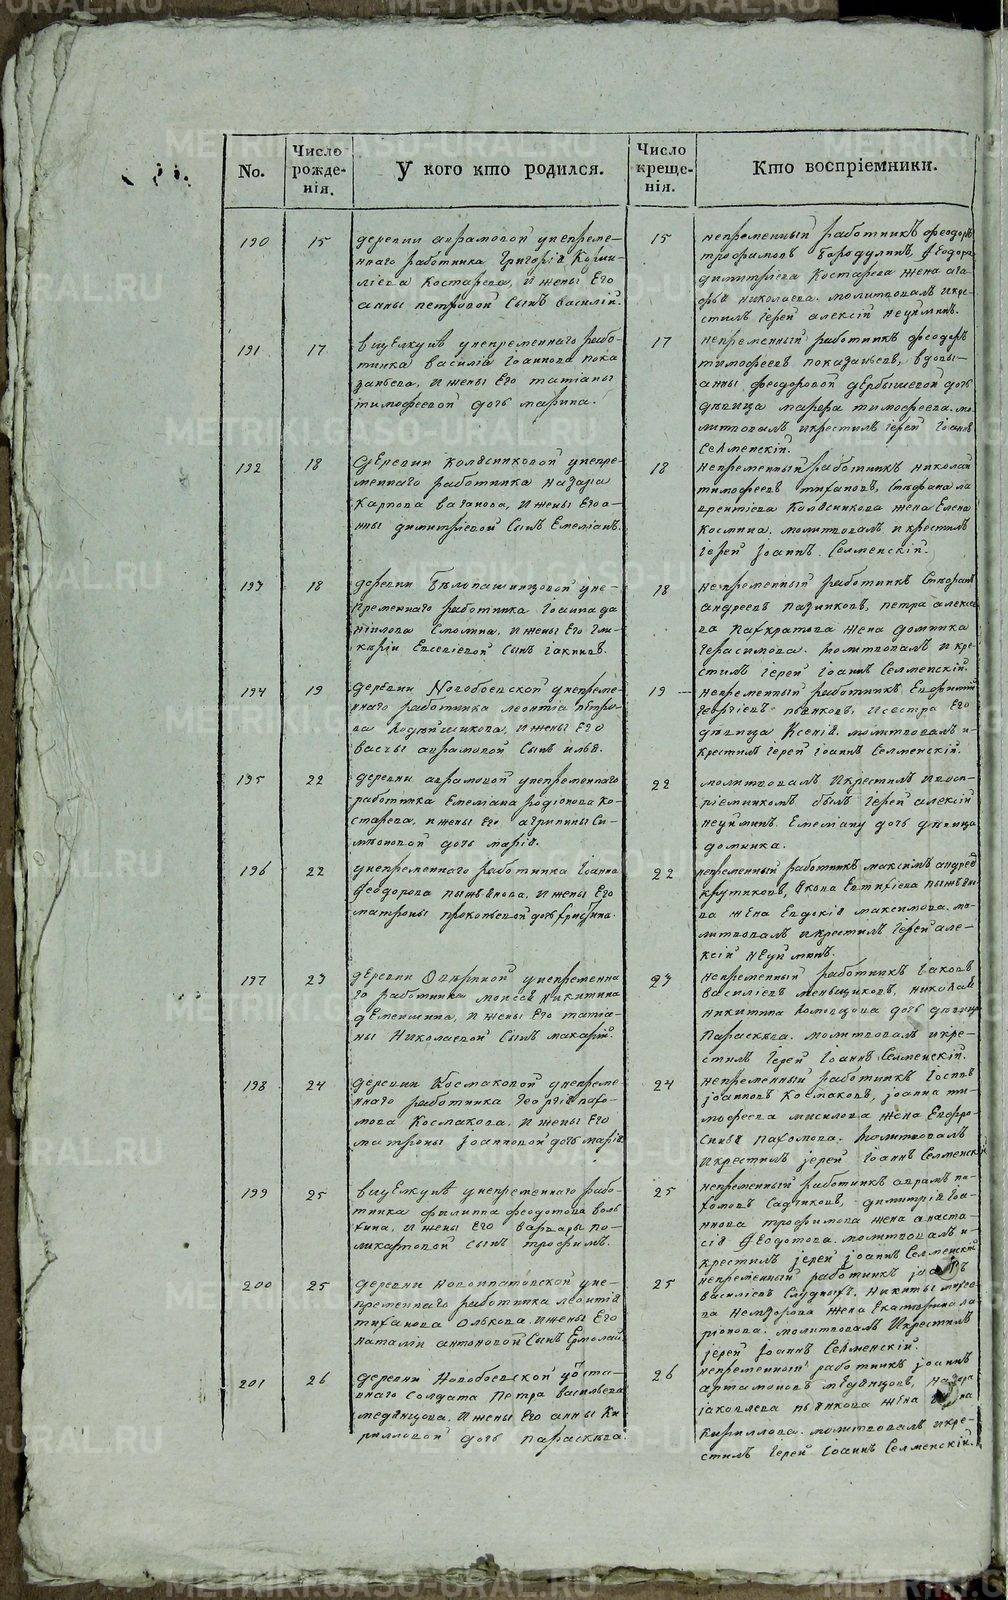 No.
Число рожде-нія.
У кого кто родился.
Число креще-нія.
Кто воспріемники.
190
15
деревни аврамовой унепреме-
ннаго работника Григорія Корни-
лієва Костарева, и жены Его
анны петровой Сынъ василій.
15
непременный работникъ феодоръ
трофимовъ Бородулинъ,
димитріева Костарева жена ага-
фья николаева. молитвовалъ икре-
стилъ Іерей алексій неуйминъ.
191
17
вищелкунѣ унепременнаго рабо-
тника василія Іоаннова пока
заньева, и жены Его татіаны
тимофеевой дочь марина.
17
непременный работникъ феодоръ
тимофеевъ показаньевъ, вдовы
анны феодоровой дербышевой дочь
дѣвица марфа тимофеева. мо-
литвовалъ икрестилъ Іерей Іоаннъ
Селменскій.
192
18
деревни Колясниковой унепре-
меннаго работника назара
карпова ваганова, и жены Его а-
нны димитріевой Сынъ Емеліанъ.
18
непременный работникъ николай
тимофеевъ тихановъ, Стефана ла
врентіева Колясникова жена Елена
Космина. молитвовалъ и крестилъ
Іерей Іоаннъ Селменскій.
193
18
деревни Бѣлопашинцовой уне-
пременнаго работника Іоанна да
ніилова Смолина, и жены Его гли-
керіи Евсевіевой Сынъ Іакинѳъ.
18
непременный работникъ Стефанъ
андреевъ пазниковъ, петра алексе
ва панкратова жена домника
Герасимова. молитвовалъ и кре-
стилъ Іерей Іоаннъ Селменскій.
194
19
деревни Новобоевской унепреме-
ннаго работника леонтія петро-
ва, и жены Его
васчы аврамовой Сынъ илья.
19
непременный работникъ Евфимій
Георгіевъ пьянковъ, и сестра Его
дѣвица Ксенія. молитвовалъ и-
крестилъ Іерей Іоаннъ Селменскій.
195
22
деревни аврамовой унепременнаго
работника Емеліана родіонова Ко-
старева, и жены Его агрипины Си-
меоновой дочь марія.
22
молитвовалъ икрестилъ ивосп-
ріемникомъ былъ Іерей алексій
неуйминъ. Емеліану дочь дѣвица
домника.
196
22
унепременнаго работника Іоанна
Феодорова пьшьянова, и жены Его
матроны прокопьевой дочь христина.
22
непременный работникъ максимъ андреев
крутиковъ, якова Евтихіева
ва жена Евдокія максимова. мо-
литвовалъ икрестилъ Іерей але-
ксій неуйминъ.
197
23
деревни Опариной унепременна
го работника моисея никитина
деменшина, и жены Его татіа-
ны Николаевой Сынъ макарій.
23
непременный работникъ Іаковъ
василіевъ меньщиковъ, николая
никитина дочь дѣвица
Параскева. молитвовалъ икре-
стилъ Іерей Іоаннъ Селменскій.
198
24
деревни Космаковой унепреме
ннаго работника Георгія пахо-
мова Космакова, и жены Его
матроны Іоанновой дочь марія
24
непременный работникъ Іосифъ
Іоанновъ Космаковъ, Іоанна ти-
мофеева мисилова жена Евфро-
синья пахомова. молитвовалъ
икрестилъ Іерей Іоаннъ Селменскій
199
25
вищелкунѣ унепременнаго рабо-
тника филиппа феодотова воль
хина, и жены Его варвары по-
ликарповой Сынъ трофимъ.
25
непременный работникъ аврамъ па-
хомовъ Садчиковъ, димитрія Іоа-
ннова трофимова жена анаста-
сія Ѳеодотова. молитвовалъ и-
крестилъ Іерей Іоаннъ Селменскій
200
25
деревни Новоипатовской уне-
пременнаго работника леонтія
тиханова Олькова, и жены Его
наталіи антоновой Сынъ Ермолай
25
непременный работникъ
василіевъ Слудныхъ, никиты
ва жена Екатерина ла
ріонова. молитвовалъ икрестилъ
Іерей Іоаннъ Селменскій.
201
26
деревни Новобоевской уоста-
внаго Солдата Петра васильева
медянцова, и жены Его анны Ки
рилловой дочь параскева.
26
непременный работникъ Іоаннъ
артамоновъ медянцовъ, назара
Іаковлева пьянкова жена
Кириллова. молитвовалъ икре-
стилъ Іерей Іоаннъ Селменскій.
METRIKI.GASO-URAL.RU